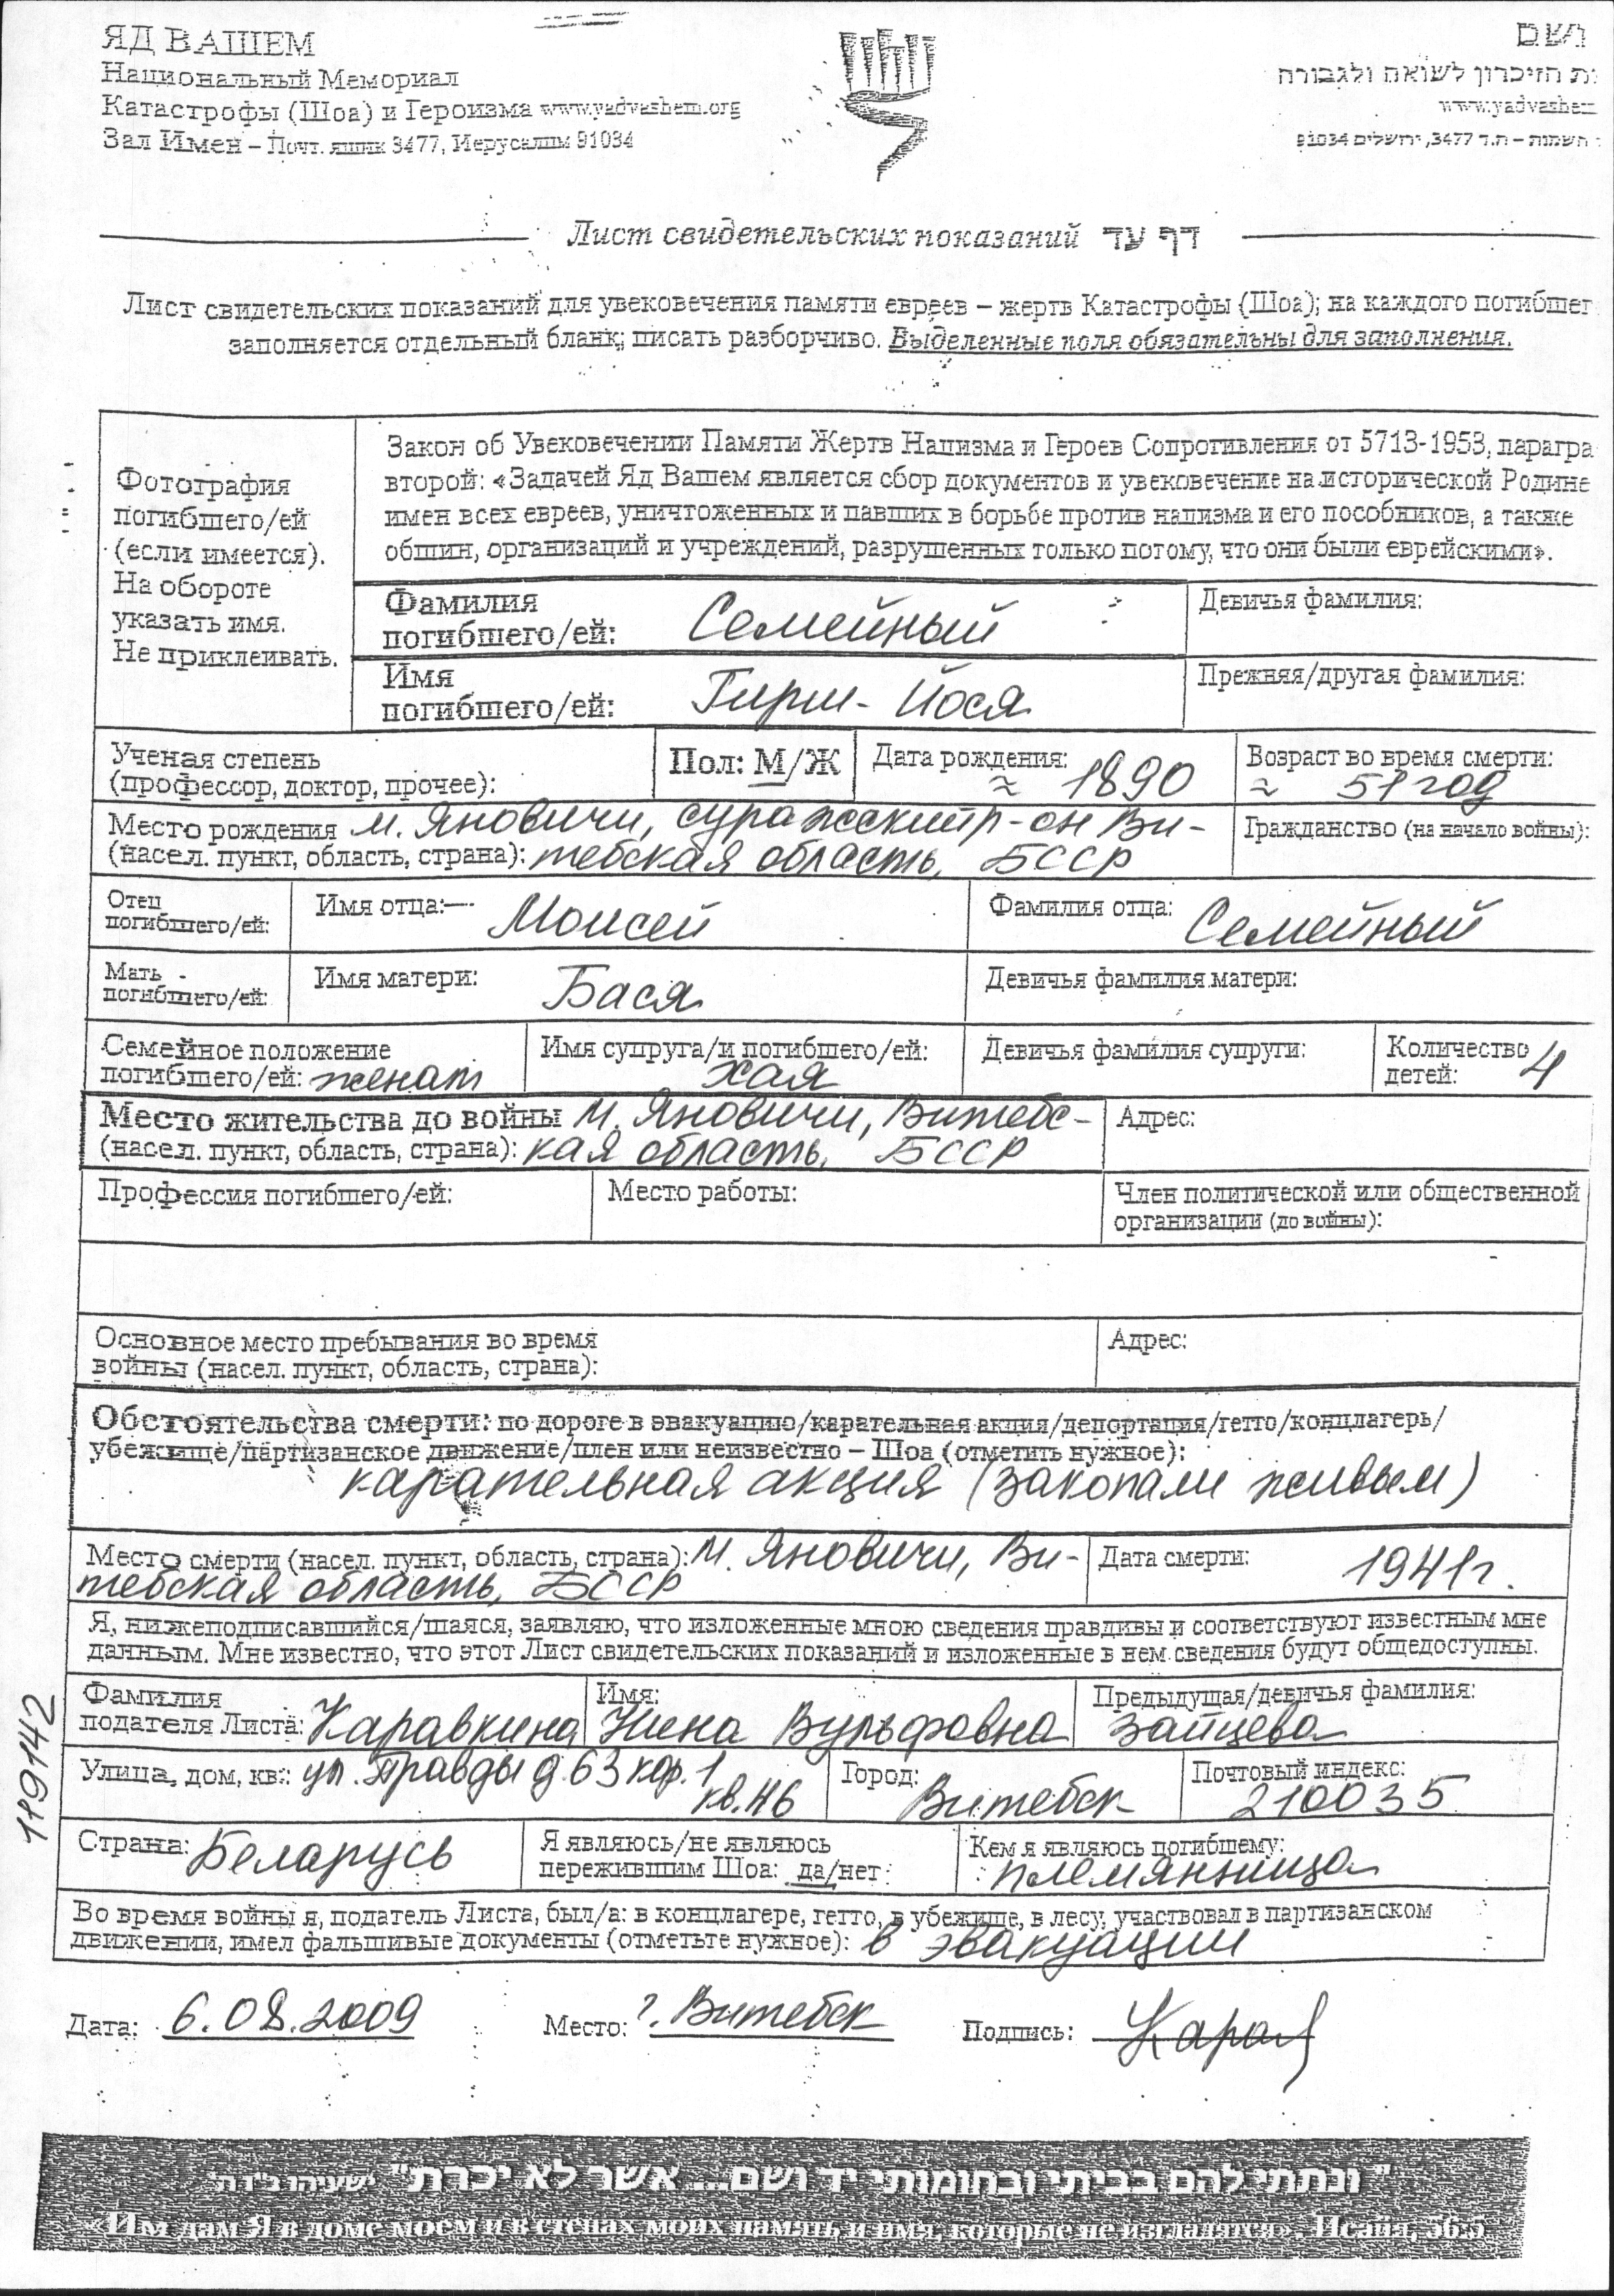 ЯД ВАШЕМ
Национальный Мемориал
Катастрофы (Шоа) и Героизма www.yadvashem.org
Зал Имен – Почт. ящик 3477, Иерусалим 91034
ושם
ות הזיכרון לשואה ולגבורה
www.yadvashem
השמות – ת.ד 3477, ירושלים 91034
Лист свидетельских показаний דף עד
Лист свидетельских показаний для увековечения памяти евреев – жертв Катастрофы (Шоа); на каждого погибшег
заполняется отдельный бланк; писать разборчиво. Выделенные поля обязательны для заполнения.
Фотография
погибшего/ей
(если имеется).
На обороте
указать имя.
Не приклеивать.
Закон об Увековечении Памяти Жертв Нацизма и Героев Сопротивления от 5713-1953, парагра
второй: «Задачей Яд Вашем является сбор документов и увековечение на исторической Родине
имен всех евреев, уничтоженных и павших в борьбе против нацизма и его пособников, а также
общин, организаций и учреждений, разрушенных только потому, что они были еврейскими».
Фамилия
погибшего/ей: Семейный
Девичья фамилия:
Имя
погибшего/ей: Гирш-Йося
Прежняя/другая фамилия:
Ученая степень
(профессор, доктор, прочее):
Пол: М/Ж
Дата рождения:
≈ 1890
Возраст во время смерти:
≈ 51 год
Место рождения м. Яновичи, Суражский р-он Ви-
(насел. пункт, область, страна): тебская область, БССР
Гражданство (на начало войны):
Отец
погибшего/ей:
Имя отца: Моисей
Фамилия отца: Семейный
Мать
погибшего/ей:
Имя матери: Бася
Девичья фамилия матери:
Семейное положение
погибшего/ей: женат
Имя супруга/и погибшего/ей:
Хая
Девичья фамилия супруги:
Количество
детей: 4
Место жительства до войны м. Яновичи, Витебс-
(насел. пункт, область, страна): кая область, БССР
Адрес:
Профессия погибшего/ей:
Место работы:
Член политической или общественной
организации (до войны):
Основное место пребывания во время
войны (насел. пункт, область, страна):
Адрес:
Обстоятельства смерти: по дороге в эвакуацию/карательная акция/депортация/гетто/концлагерь/
убежище/партизанское движение/плен или неизвестно – Шоа (отметить нужное):
карательная акция (закопали живым)
Место смерти (насел. пункт, область, страна): м. Яновичи, Ви-
тебская область, БССР
Дата смерти: 1941г.
Я, нижеподписавшийся/шаяся, заявляю, что изложенные мною сведения правдивы и соответствуют известным мне
данным. Мне известно, что этот Лист свидетельских показаний и изложенные в нем сведения будут общедоступны.
Фамилия
подателя Листа: Каравкина
Имя:
Нина Вульфовна
Предыдущая/девичья фамилия:
Зайцева
Улица, дом, кв.: ул. Правды д. 63 кор. 1
кв. 46
Город:
Витебск
Почтовый индекс:
210035
119142
Страна: Беларусь
Я являюсь/не являюсь
пережившим Шоа: да/нет
Кем я являюсь погибшему:
племянница
Во время войны я, податель Листа, был/а: в концлагере, гетто, в убежище, в лесу, участвовал в партизанском
движении, имел фальшивые документы (отметьте нужное): в эвакуации
Дата: 6.08.2009 Место: г. Витебск Подпись:
"ונתתי להם בביתי ובחומותי יד ושם... אשר לא יכרת" ישעיהו נ"ו ה'
«Им дам Я в доме моем и в стенах моих память и имя, которые не изгладятся». Исайя, 56:5